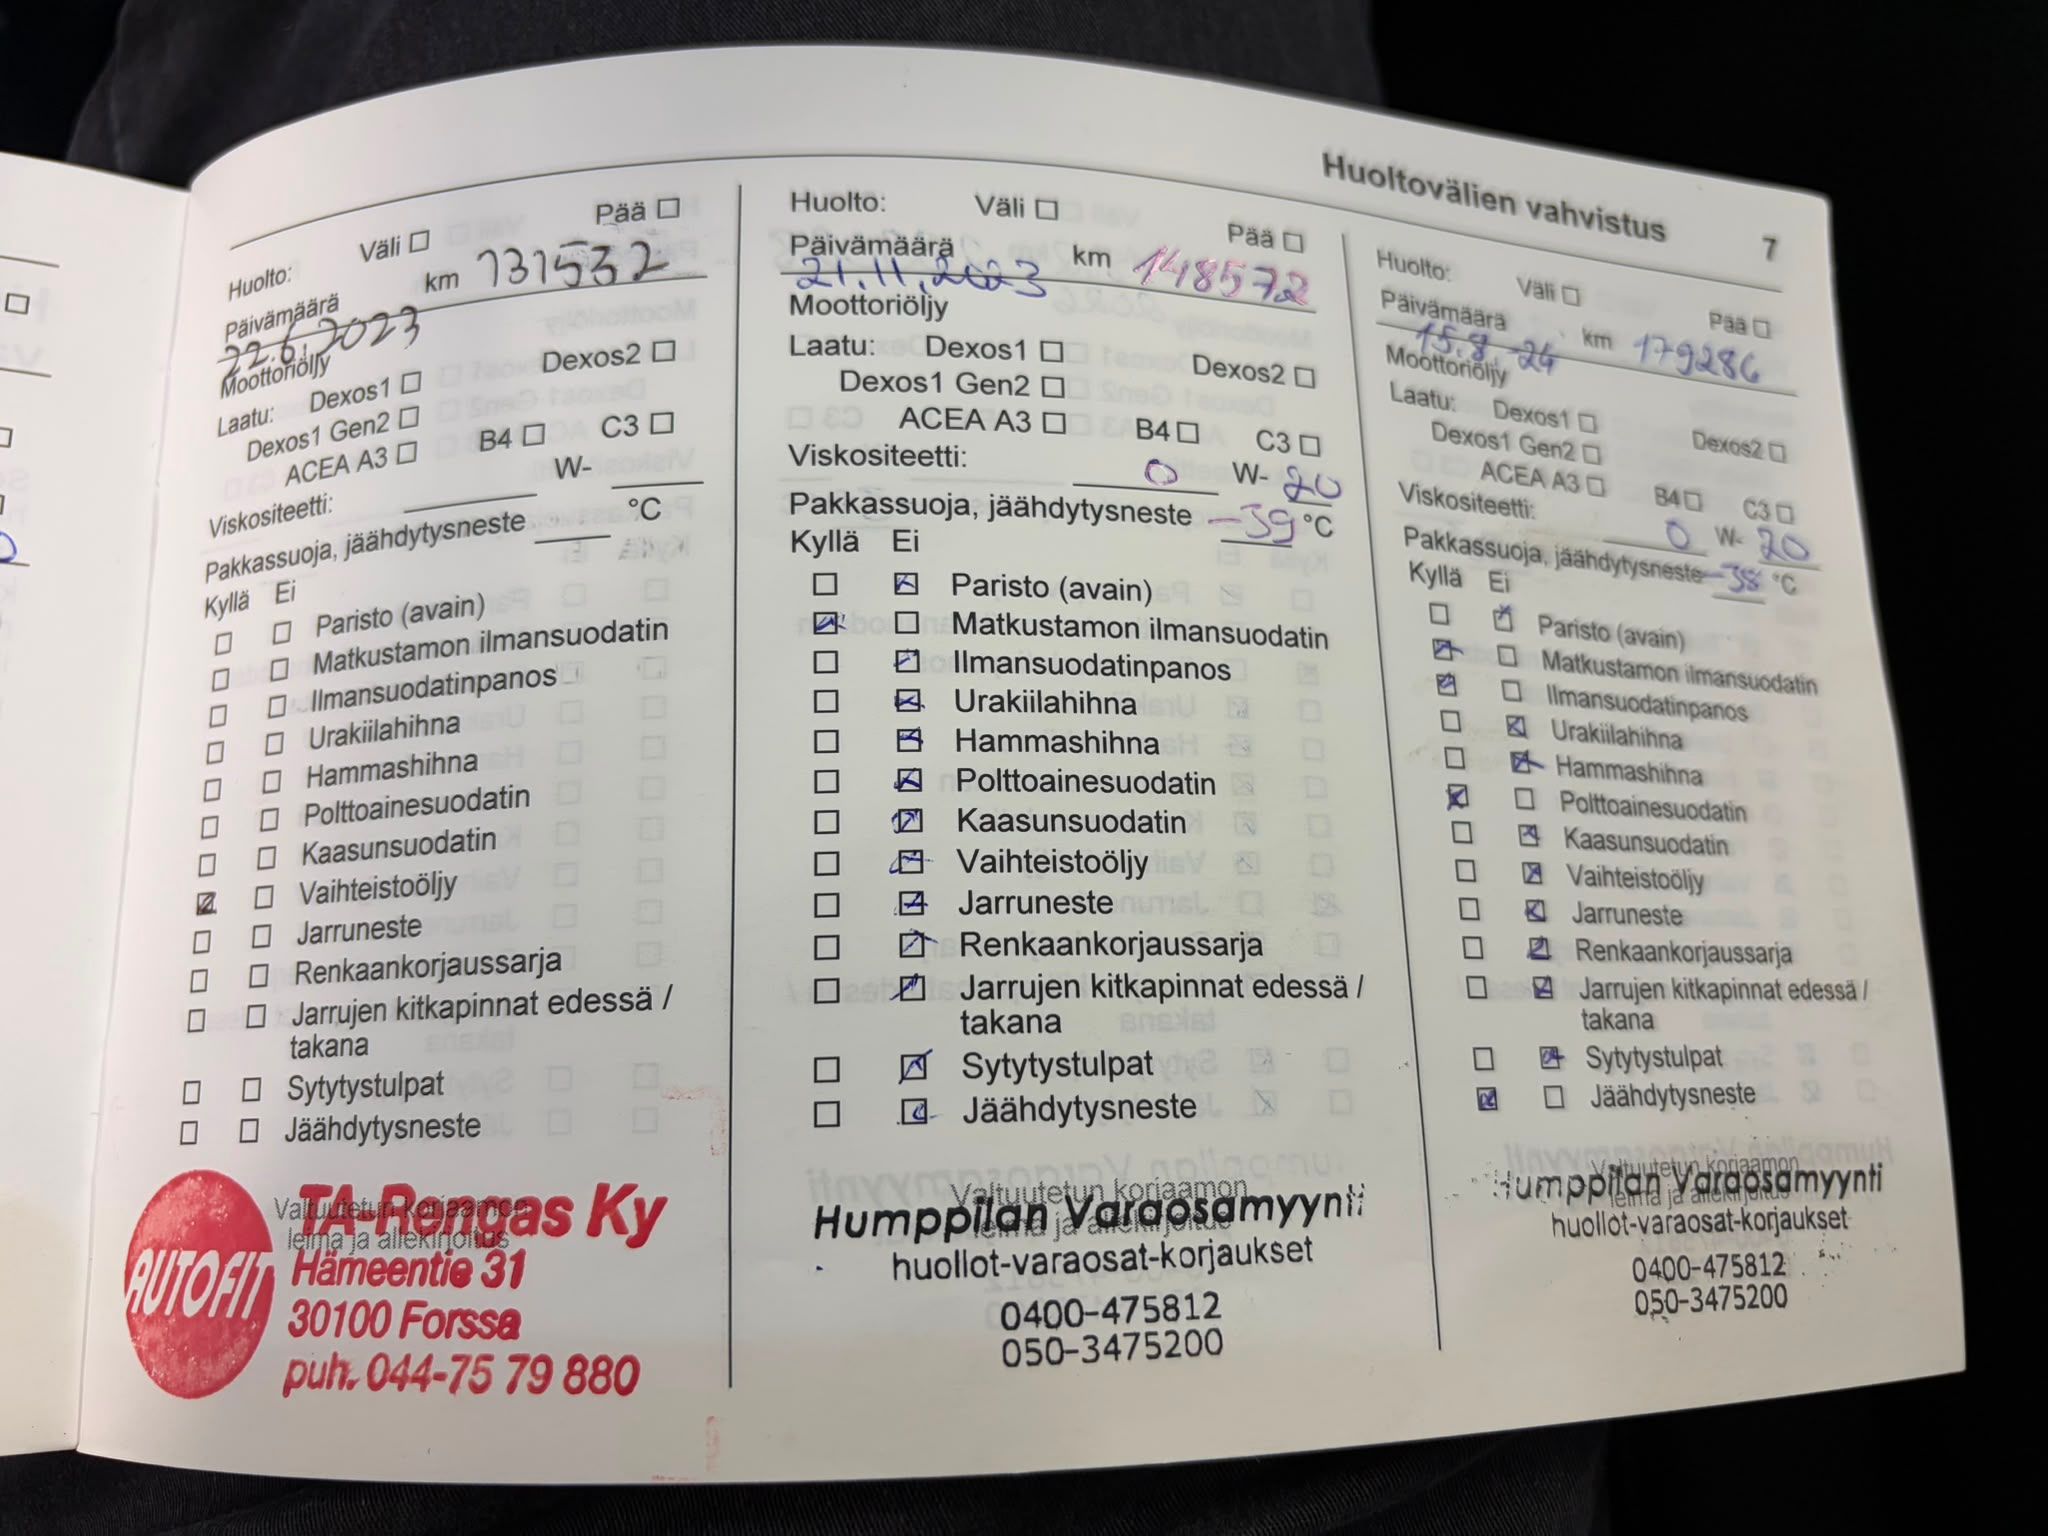 Huoltovälien vahvistus 7
Huolto: Väli ☐ Pää ☐
Päivämäärä km 131532
22.6.2023
Moottoriöljy
Laatu: Dexos1 ☐ Dexos2 ☐
Dexos1 Gen2 ☐
ACEA A3 ☐ B4 ☐ C3 ☐
Viskositeetti: W-
Pakkassuoja, jäähdytysneste °C
Kyllä Ei
☐ ☐ Paristo (avain)
☐ ☐ Matkustamon ilmansuodatin
☐ ☐ Ilmansuodatinpanos
☐ ☐ Urakiilahihna
☐ ☐ Hammashihna
☐ ☐ Polttoainesuodatin
☐ ☐ Kaasunsuodatin
☒ ☐ Vaihteistoöljy
☐ ☐ Jarruneste
☐ ☐ Renkaankorjaussarja
☐ ☐ Jarrujen kitkapinnat edessä /
takana
☐ ☐ Sytytystulpat
☐ ☐ Jäähdytysneste
Valtuutetun korjaamon
leima ja allekirjoitus
AUTOFIT
TA-Rengas Ky
Hämeentie 31
30100 Forssa
puh. 044-75 79 880
Huolto: Väli ☐ Pää ☐
Päivämäärä km 148572
21.11.2023
Moottoriöljy
Laatu: Dexos1 ☐ Dexos2 ☐
Dexos1 Gen2 ☐
ACEA A3 ☐ B4 ☐ C3 ☐
Viskositeetti: 0 W- 20
Pakkassuoja, jäähdytysneste -39 °C
Kyllä Ei
☐ ☒ Paristo (avain)
☒ ☐ Matkustamon ilmansuodatin
☐ ☒ Ilmansuodatinpanos
☐ ☒ Urakiilahihna
☐ ☒ Hammashihna
☐ ☒ Polttoainesuodatin
☐ ☒ Kaasunsuodatin
☐ ☒ Vaihteistoöljy
☐ ☒ Jarruneste
☐ ☒ Renkaankorjaussarja
☐ ☒ Jarrujen kitkapinnat edessä /
takana
☐ ☒ Sytytystulpat
☐ ☒ Jäähdytysneste
Valtuutetun korjaamon
leima ja allekirjoitus
Humppilan Varaosamyynti
huollot-varaosat-korjaukset
0400-475812
050-3475200
Huolto: Väli ☐ Pää ☐
Päivämäärä km 179286
15.8.-24
Moottoriöljy
Laatu: Dexos1 ☐ Dexos2 ☐
Dexos1 Gen2 ☐
ACEA A3 ☐ B4 ☐ C3 ☐
Viskositeetti: 0 W- 20
Pakkassuoja, jäähdytysneste -38 °C
Kyllä Ei
☐ ☒ Paristo (avain)
☒ ☐ Matkustamon ilmansuodatin
☒ ☐ Ilmansuodatinpanos
☐ ☒ Urakiilahihna
☐ ☒ Hammashihna
☒ ☐ Polttoainesuodatin
☐ ☒ Kaasunsuodatin
☐ ☒ Vaihteistoöljy
☐ ☒ Jarruneste
☐ ☒ Renkaankorjaussarja
☐ ☒ Jarrujen kitkapinnat edessä /
takana
☐ ☒ Sytytystulpat
☒ ☐ Jäähdytysneste
Valtuutetun korjaamon
leima ja allekirjoitus
Humppilan Varaosamyynti
huollot-varaosat-korjaukset
0400-475812
050-3475200